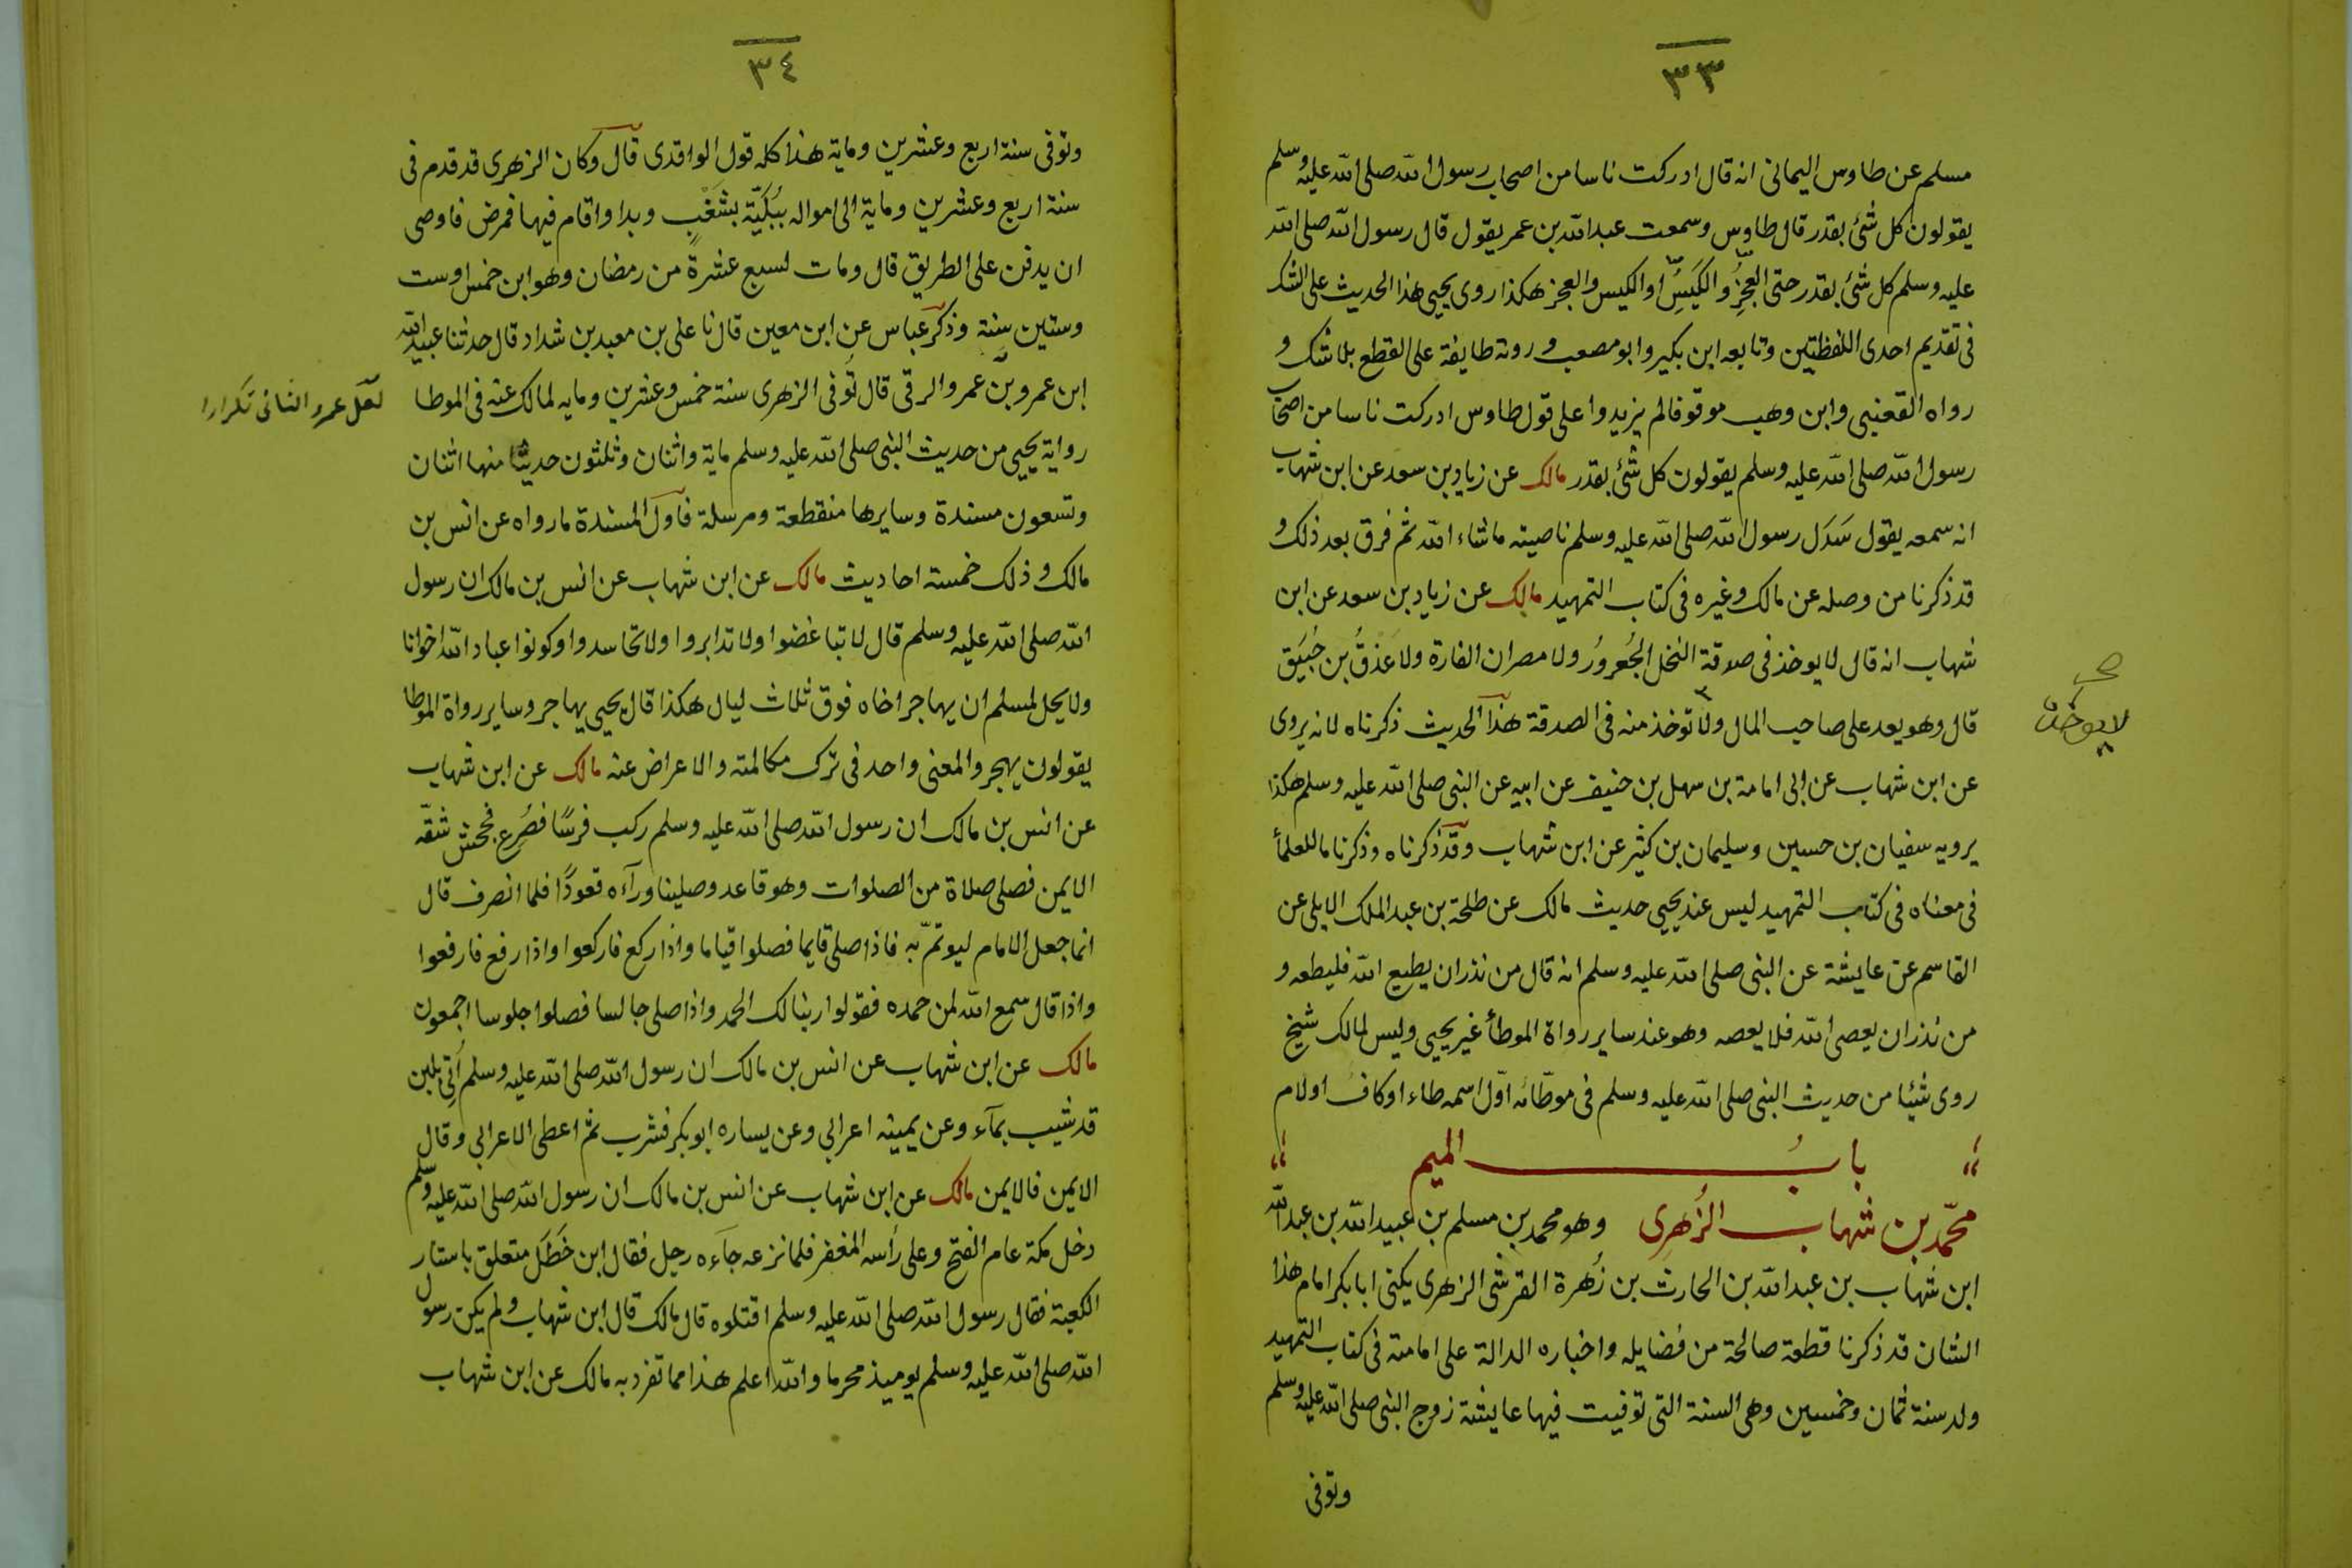 ٣٣
مسلم عن طاوس اليمانى انه قال ادركت ناسا من اصحاب رسول الله صلى الله عليه وسلم
يقولون كل شئ بقدر قال طاوس وسمعت عبد الله بن عمر يقول قال رسول الله صلى الله
عليه وسلم كل شئ بقدر حتى العجز والكيس او الكيس والعجز هكذا روى يحيى هذا الحديث على الشك
فى تقديم احدى اللفظتين وتابعه ابن بكير وابو مصعب وروته طايفة على القطع بلا شك و
رواه القعنبى وابن وهب موقوفا لم يزيدوا على قول طاوس ادركت ناسا من اصحاب
رسول الله صلى الله عليه وسلم يقولون كل شئ بقدر مالك عن زياد بن سعد عن ابن شهاب
انه سمعه يقول سَدَل رسول الله صلى الله عليه وسلم ناصيته ما شاء الله ثم فرق بعد ذلك و
قد ذكرنا من وصله عن مالك وغيره فى كتاب التمهيد مالك عن زياد بن سعد عن ابن
شهاب انه قال لا يوخذ فى صدقة النخل الجُعرورُ ولا مصران الفارة ولا عَذقُ بن حُبَيَق
قال وهو يعد على صاحب المال ولا توخذ منه فى الصدقة هذا الحديث ذكرناه لانه يروى
لا يوخذ
عن ابن شهاب عن ابى امامة بن سهل بن حنيف عن ابيه عن النبى صلى الله عليه وسلم هكذا
يرويه سفيان بن حسين وسليمان بن كثير عن ابن شهاب وقد ذكرناه وذكرنا ما للعلمأ
فى معناه فى كتاب التمهيد ليس عند يحيى حديث مالك عن طلحة بن عبد الملك الايلى عن
القاسم عن عايشة عن النبى صلى الله عليه وسلم انه قال من نذر ان يطيع الله فليطعه و
من نذر ان يعصى الله فلا يعصه وهو عند ساير رواة الموطأ غير يحيى وليس لمالك شيخ
روى شيئا من حديث النبى صلى الله عليه وسلم فى موطّائه اوّل اسمه طاء او كاف او لام
بابُ الميم
محمّد بن شهاب الزُهرِى وهو محمد بن مسلم بن عبيد الله بن عبد الله
ابن شهاب بن عبد الله بن الحارث بن زُهرة القرشى الزهرى يكنى ابا بكر امام هذا
الشان قد ذكرنا قطعة صالحة من فضايله واخباره الدالة على امامته فى كتاب التمهيد
ولد سنة ثمان وخمسين وهى السنة التى توفيت فيها عايشة زوج النبى صلى الله عليه وسلم
وتوفى
٣٤
وتوفى سنة اربع وعشرين وماية هذا كله قول الواقدى قال وكان الزهرى قد قدم فى
سنة اربع وعشرين وماية الى امواله بشَغْبٍ وبدا واقام فيها فمرض فاوصى
ان يدفن على الطريق قال ومات لسبع عشرةٍ من رمضان وهو ابن خمس او ست
وستين سنة وذكر عباس عن ابن معين قال نا على بن معبد بن شداد قال حدثنا عبيد الله
ابن عمرو بن عمرو الرقى قال تُوفى الزهرى سنة خمس وعشرين ومايه لمالك عنه فى الموطا
لعَلَ عمرو الثانى تكرارا
رواية يحيى من حديث النبى صلى الله عليه وسلم ماية واثنان وثلثون حديثا منها اثنان
وتسعون مسندة وسايرها منقطعة ومرسلة فاول المسندة ما رواه عن انس بن
مالك وذلك خمسة احاديث مالك عن ابن شهاب عن انس بن مالك ان رسول
الله صلى الله عليه وسلم قال لا تباغضوا ولا تدابروا ولا تحاسدوا وكونوا عباد الله اخوانا
ولا يحل لمسلم ان يهاجر اخاه فوق ثلاث ليال هكذا قال يحيى يهاجر وساير رواة الموطا
يقولون يهجر والمعنى واحد فى ترك مكالمته والاعراض عنه مالك عن ابن شهاب
عن انس بن مالك ان رسول الله صلى الله عليه وسلم ركب فرسًا فصُرِع فجحش شقّه
الايمن فصلى صلاة من الصلوات وهو قاعد وصلينا ورآءه قعودًا فلما انصرف قال
انما جعل الامام ليوتمّ به فاذا صلى قايما فصلوا قياما واذا ركع فاركعوا واذا رفع فارفعوا
واذا قال سمع الله لمن حمده فقولوا ربنا لك الحمد واذا صلى جالسا فصلوا جلوسا اجمعون
مالك عن ابن شهاب عن انس بن مالك ان رسول الله صلى الله عليه وسلم أُتِى بلبن
قد شيب بمآء وعن يمينه اعرابى وعن يساره ابو بكر فشرب ثم اعطى الاعرابى وقال
الايمن فالايمن مالك عن ابن شهاب عن انس بن مالك ان رسول الله صلى الله عليه وسلم
دخل مكة عام الفتح وعلى رأسه المغفر فلما نزعه جآءه رجل فقال ابن خَطَل متعلق باستار
الكعبة فقال رسول الله صلى الله عليه وسلم اقتلوه قال مالك قال ابن شهاب ولم يكن رسول
الله صلى الله عليه وسلم يوميذ محرما والله اعلم هذا مما تفرد به مالك عن ابن شهاب